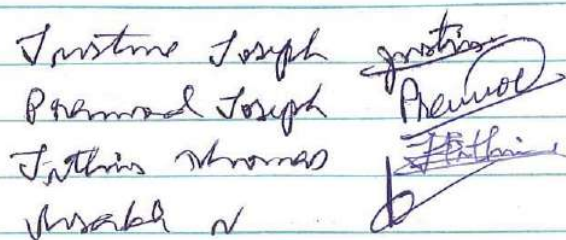 Justine Joseph Justin
Pramod Joseph Pramod
Jithin Thomas Jithin
N